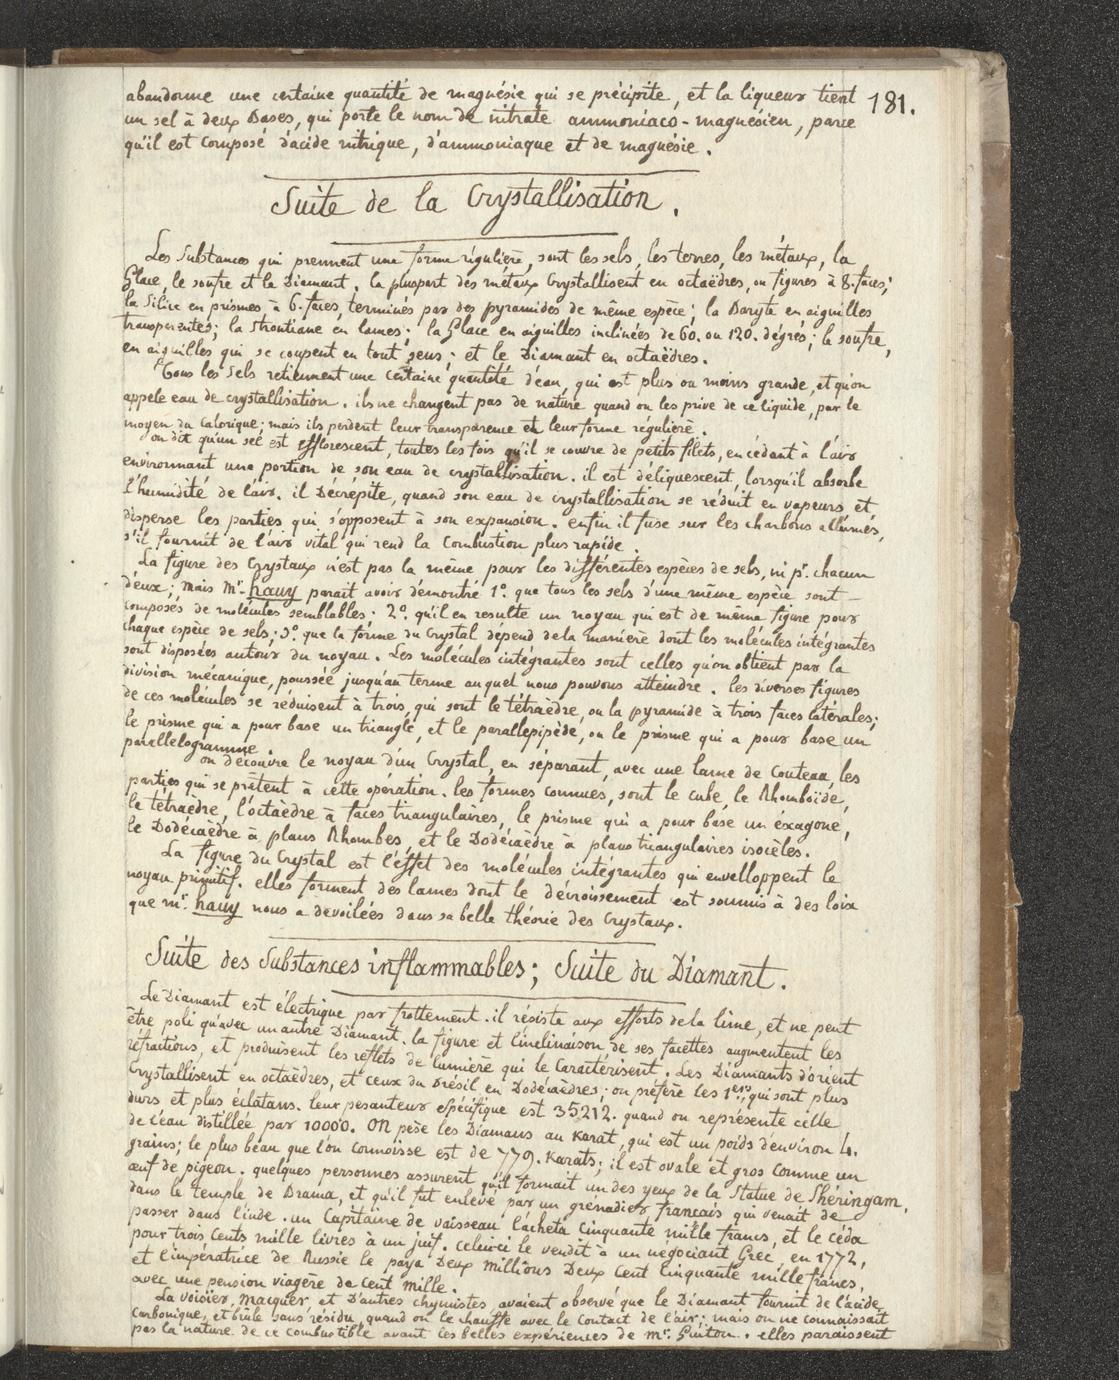 181.
abandonne une certaine quantité de magnésie qui se précipite, et la liqueur tient
un sel à deux Bases, qui porte le nom de nitrate ammoniaco-magnésien, parce
qu'il est composé d'acide nitrique, d'ammoniaque et de magnésie.
Suite de la Crystallisation.
Les Substances qui prennent une forme régulière, sont les sels, les terres, les métaux, la
Glace, le soufre et le Diamant. la pluspart des métaux Crystallisent en octaëdres, ou figures à 8. faces;
la Silice en prismes à 6. faces, terminés par des pyramides de même espèce; la Baryte en aiguilles
transparentes; la Strontiane en lames; la Glace en aiguilles inclinées de 60. ou 120. dégrés; le soufre,
en aiguilles qui se coupent en tout sens; et le Diamant en octaëdres.
Tous les Sels retiennent une certaine quantité d'eau, qui est plus ou moins grande, et qu'on
appele eau de crystallisation. ils ne changent pas de nature quand on les prive de ce liquide, par le
moyen du Calorique; mais ils perdent leur transparence et leur forme régulière.
on dit qu'un sel est efflorescent, toutes les fois qu'il se couvre de petits filets, en cédant à l'air
environnant une portion de son eau de crystallisation. il est déliquescent, lorsqu'il absorbe
l'humidité de l'air. il Décrépite, quand son eau de crystallisation se réduit en vapeurs et
disperse les parties qui s'opposent à son expansion. enfin il fuse sur les charbons allumés,
s'il fournit de l'air vital qui rend la Combustion plus rapide.
La figure des Crystaux n'est pas la même pour les différentes espèces de sels, ni pr. chacun
d'eux; mais Mr. hauy parait avoir démontré 1o. que tous les sels d'une même espèce sont
composés de molécules semblables: 2o. qu'il en resulte un noyau qui est de même figure pour
chaque espèce de sels; 3o. que la forme du Crystal dépend de la manière dont les molécules intégrantes
sont disposées autour du noyau. Les molécules intégrantes sont celles qu'on obtient par la
division mécanique, poussée jusqu'au terme auquel nous pouvons atteindre. les diverses figures
de ces molécules se réduisent à trois, qui sont le tétraèdre, ou la pyramide à trois faces latérales;
le prisme qui a pour base un triangle, et le parallepipède, ou le prisme qui a pour base un
parallelogramme.
on découvre le noyau d'un Crystal, en séparant, avec une lame de Couteau, les
parties qui se prêtent à cette opération. les formes connues, sont le cube, le Rhomboïde,
le tétraèdre, l'octaèdre à faces triangulaires, le prisme qui a pour base un éxagone,
le Dodécaèdre à plans Rhombes, et le Dodécaèdre à plans triangulaires isocèles.
La figure du Crystal est l'effet des molécules intégrantes qui enveloppent le
noyau primitif. elles forment des lames dont le décroissement est soumis à des loix
que mr. hauy nous a devoilées dans sa belle théorie des Crystaux.
Suite des Substances inflammables; Suite du Diamant.
Le Diamant est électrique par frottement. il résiste aux efforts de la lime, et ne peut
être poli qu'avec un autre Diamant. la figure et l'inclinaison de ses facettes augmentent les
réfractions, et produisent les reflets de lumière qui le Caractérisent. Les Diamants d'orient
Crystallisent en octaèdres, et ceux du Brésil en Dodécaèdres; on préfère les 1ers. qui sont plus
durs et plus éclatans. leur pesanteur spécifique est 35212. quand on représente celle
de l'eau distillée par 10000. On pèse les Diamans au Karat, qui est un poids d'environ 4.
grains; le plus beau que l'on connoisse est de 779. Karats; il est ovale et gros comme un
œuf de pigeon. quelques personnes assurent qu'il formait un des yeux de la Statue de Shéringam,
dans le temple de Brama, et qu'il fut enlevé par un grénadier français qui venait de
passer dans l'inde. un Capitaine de vaisseau l'acheta Cinquante mille francs, et le céda
pour trois Cents mille livres à un juif. celui-ci le vendit à un négociant Grec, en 1772,
et l'impératrice de Russie le paya Deux millions Deux Cent Cinquante mille francs,
avec une pension viagère de Cent mille.
Lavoisier, Macquer, et D'autres chymistes avaient observé que le Diamant fournit de l'acide
carbonique, et brûle sans résidu, quand on le chauffe avec le Contact de l'air; mais on ne connaissait
pas la nature de ce combustible avant les belles expériences de mr. Guiton. elles paraissent